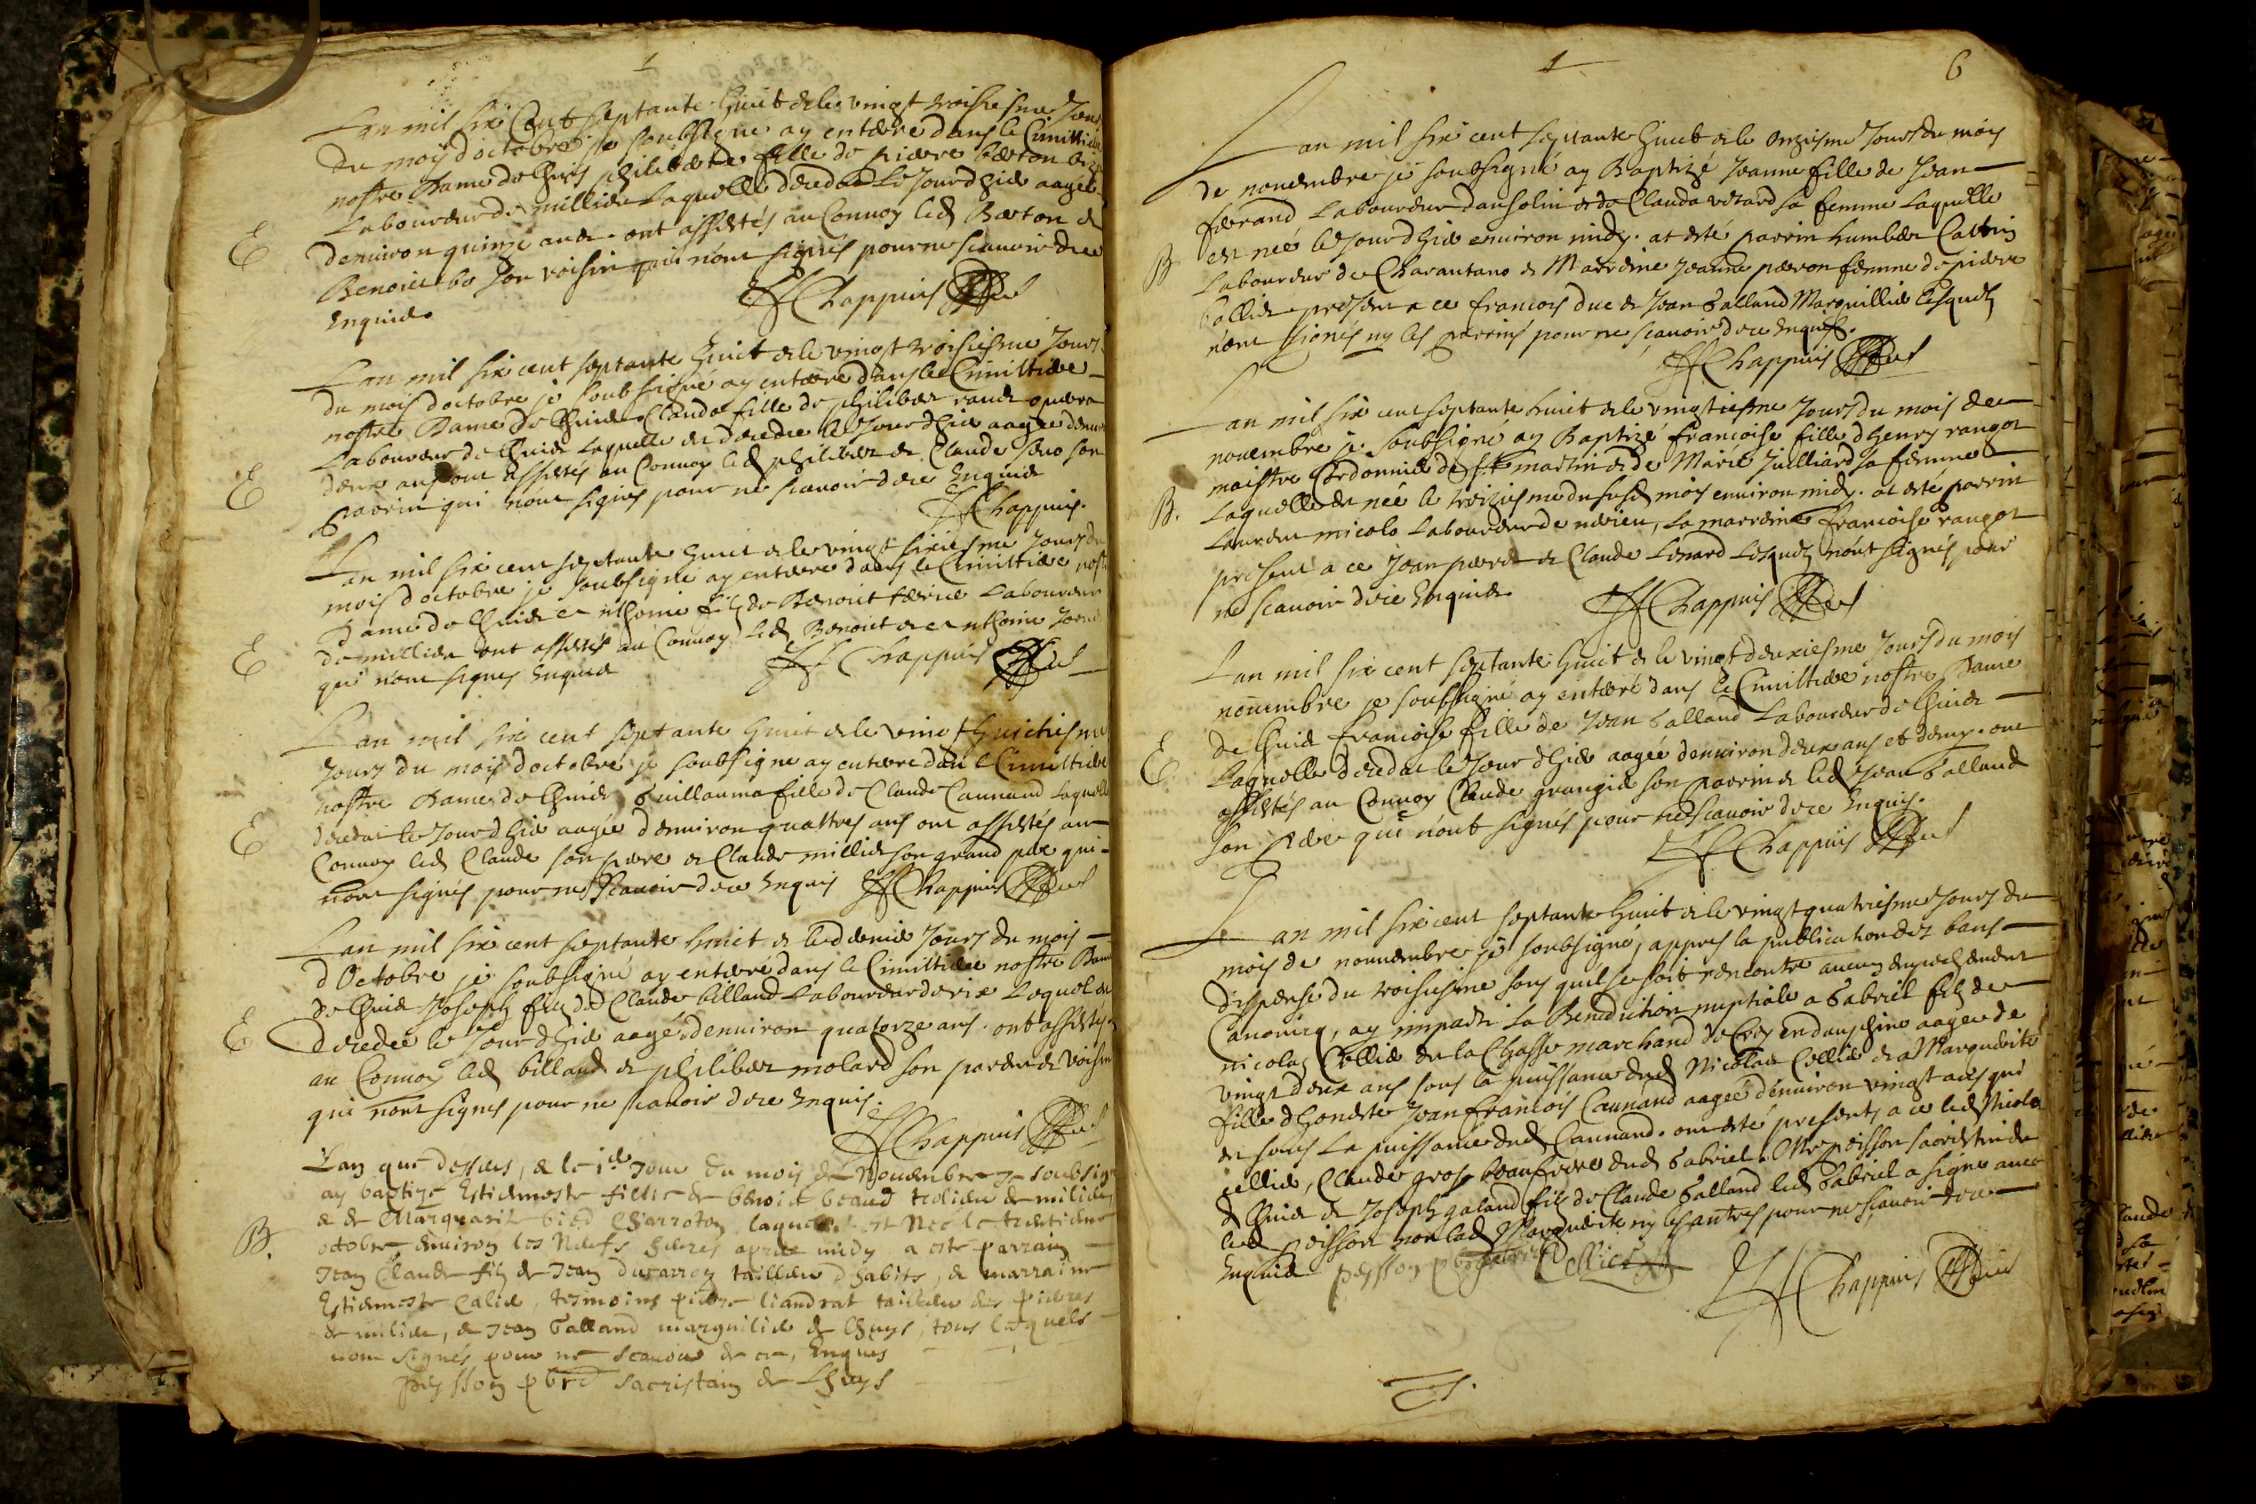 1
Lan mil six Cent septante huict & le vingt troisiesme Jour
du mois doctobre je soubsigne ay enterre dans le Cimittiere
nostre Dame de Lhuis philiberte fille de pierre berton
Laboureur de millieu Laquelle deceda Le Jour dhier aagée
denuiron quinze ans. ont assistés au Conuoy led Berton &
Benoict bo son voisin qui nont signés pour ne scauoir de ce
Enquis
Chappuis
E
Lan mil six cent septante huict & le vingt troisiesme Jours
du mois doctobre je soubsigné ay enterre dans le Cimittiere
nostre Dame de Lhuis Claudа fille de philiber
Laboureur de Lhuis laquelle est decedee le Jour dhier aagee denui
deux ans ont assistés au Conuoy led philiber & Claude son
parrin qui nont signés pour ne scauoir de ce Enquis
Chappuis.
E
Lan mil six cent septante huict & le vingt sixiesme Jours du
mois doctobre je soubsigné ay enterre dans le Cimittiere nost
Dame de Lhuis Anthoine filz de Benoict Laboureur
de millieu ont assistés au Conuoy led Benoict & Anthoine
qui nont signes Enquis
Chappuis
E
Lan mil six cent septante huict & le vingt huictiesme
Jours du mois doctobre je soubsigne ay enterre dan le Cimittiere
nostre Dame de Lhuis Guillauma fille de Claude Cannand Laquelle
deceda le Jour dhier aagée denuiron quattres ans ont assistés au
Conuoy led Claude son pere & Claude millieu son grand pere qui
nont signés pour ne scauoir de ce Enquis
Chappuis
E
Lan mil six cent septante huict & le dernier Jours du mois
dOctobre je soubsigné ay enterré dans le Cimittiere nostre Dame
de Lhuis Joseph filz de Claude billand Labourеur Lequel est
decede le Jour dhier aagé denuiron quatorze ans. ont assistés
au Conuoy led billand & philiber molard son parent & voisin
qui nont signes pour ne scauoir de ce Enquis.
Chappuis
E
Lan que dessus, & le 1er Jour du mois de Nouembre Je soubsig
ay baptizé Estiennette fille de benoict beaud de milieu
& de Marguerite laquelle est Nee le trentiesme
octobre enuiron les Neufs heures apres midy a este parrain
Jean Claude filz de Jean ducarroz tailleur dhabits, & marraine
Estiennette Calie, tesmoins pierre liandrat tailleur des pierres
de milieu, & Jean Galland marguilier de Lhuys, tous lesquels
nont signés pour ne scauoir de ce, Enquis
peysson pbre sacristain de Lhuys
B.
1
6
Lan mil six cent septante huict & le onziesme Jours du mois
de nouembre je soubsigné ay Baptizé Jeanne fille de Jean
ferrand Laboureur dansolin & de Clauda sa femme Laquelle
est née le Jour dhier enuiron midy. at esté parrin humber Cattin
Laboureur de Charantano & Marreine Jeanne peron femme de pierre
Collier present a ce francois duc & Jean Galland Marguillier lesquelz
nont signés ny les parrins pour ne scauoir de ce Enquis.
Chappuis
B
Lan mil six cent septante huict & le vingtiesme Jours du mois de
nouembre je soubsigné ay Baptizé francoise fille dhenry rangot
maistre Cordonnier de st martin & de Marie Juilliard sa femme
Laquelle est née le treziesme dususd mois enuiron midy. at esté parrin
Laurent micolo Laboureur de merieu, La marreine francoise rangot
present a ce Jean & Claude Lénard Lesquelz nont signés pour
ne scauoir de ce Enquis
Chappuis
B.
Lan mil six cent septante huict & le vingt deuxiesme Jours du mois
nouembre je soubsigné ay enterré dans le Cimittiere nostre Dame
de Lhuis francoise fille de Jean Galland Laboureur de Lhuis
Laquelle deceda le Jour dhier aagée denuiron deux ans et demy. ont
assistés au Conuoy Claude grangier son parrin & led Jean Galland
son pere qui nont signés pour ne scauoir de ce Enquis.
Chappuis
E
Lan mil six cent septante huict & le vingt quatriesme Jours du
mois de nouuembre je soubsigné, appres la publication dez bans
dispense du troisiesme sans quil se soit rencontre aucun empechement
Canonicq, ay imparti La Benediction nuptiale a Gabriel filz de
nicolas Cellier de la Chasse marchand de en dauphine aagee de
vingt deux ans sous la puissance dud Nicolas Cellier & a Marguerite
fille dhoneste Jean francois Cannand aagée denuiron vingt ans qui
est sous La puissance dud Cannand. ont esté presents a ce led Nicolas
cellier, Claude gros beaufrere dud Gabriel, Mre peisson sacristin de
Lhuis & Joseph galand filz de Claude Galland led Gabriel a signe auec
led peisson non lad Marguerite ny les autres pour ne scauoir de ce
Enquis peysson pbre Cellier
Chappuis